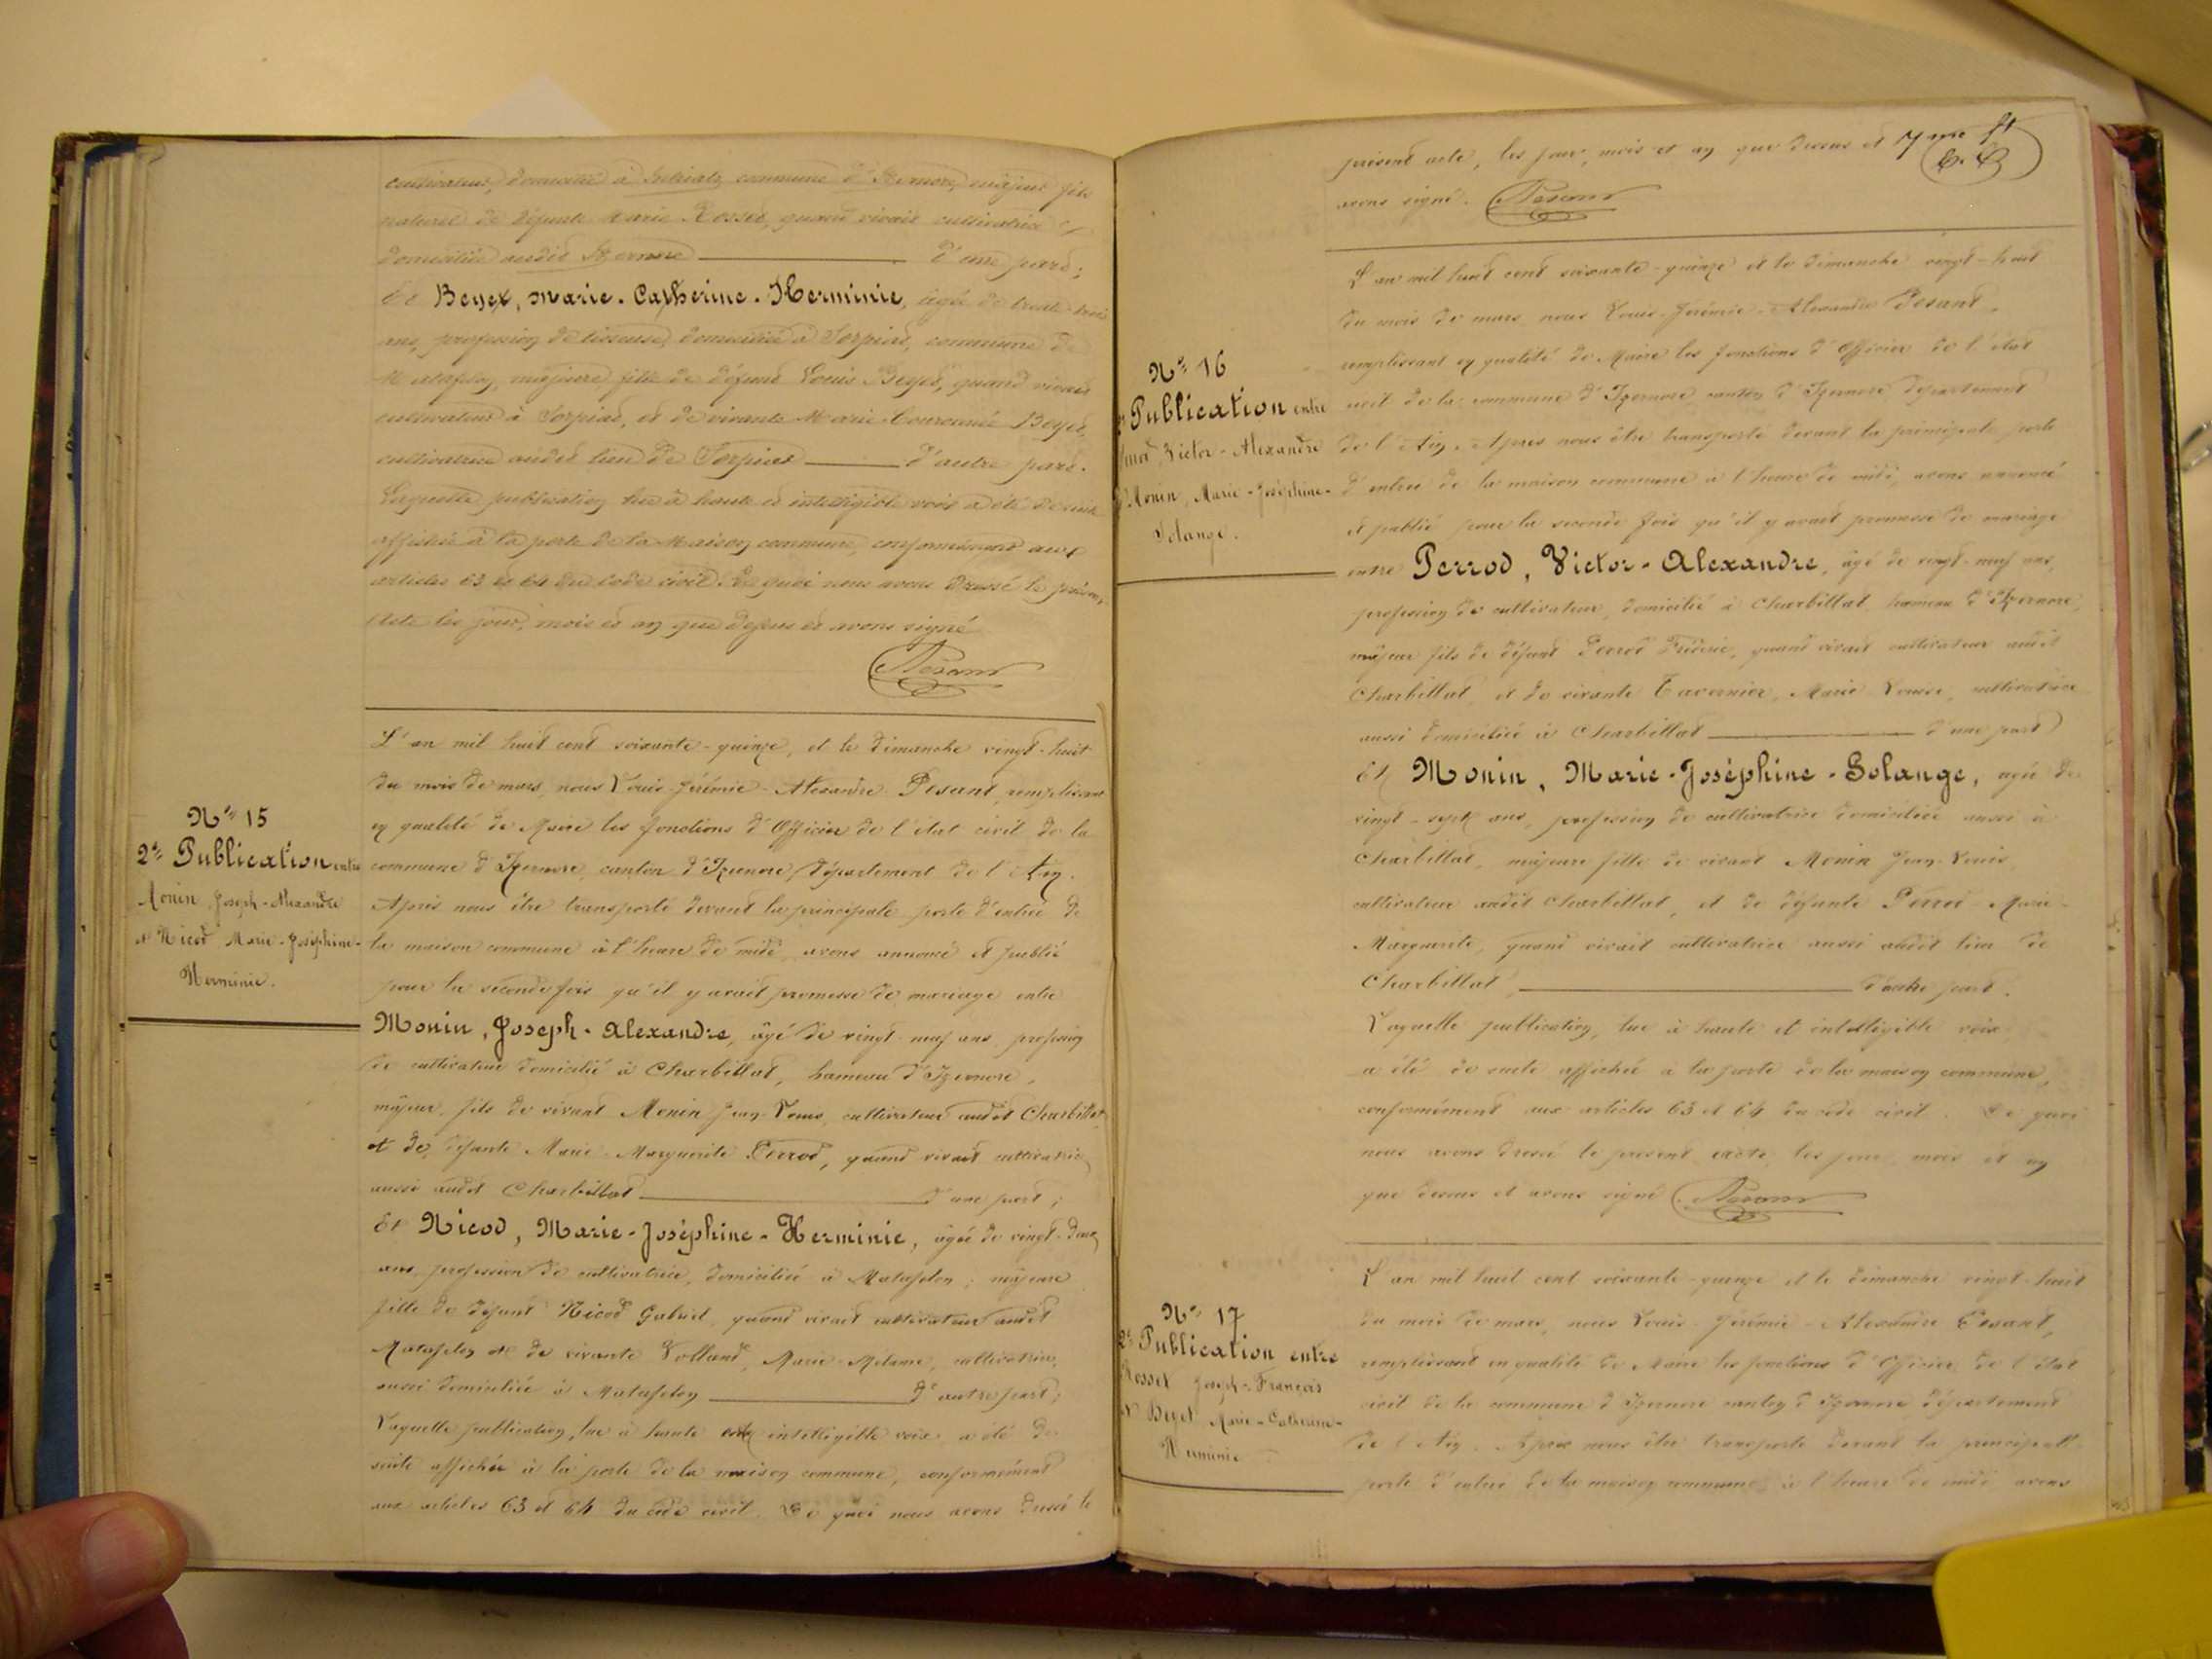 cultivateur, domicilié à Intriatz commune d'Izernore, majeur fils
naturel de défunte Marie Rosset, quand vivait cultivatrice
domiciliée audit Izernore d'une part;
Et Beyet, Marie-Catherine-Herminie, âgée de trente-trois
ans, profession de tisseuse, domiciliée à Sorpiat, commune de
Matafelon, majeure fille de défunt Louis Beyet, quand vivait
cultivateur à Sorpiat, et de vivante Marie Beyet,
cultivatrice audit lieu de Sorpiat d'autre part.
Laquelle publication lue à haute et intelligible voix a été de suite
affichée à la porte de la Maison commune, conformément aux
articles 63 et 64 du code civil. De quoi nous avons dressé le présent
acte les jour, mois et an que dessus et avons signé
Pesant
N° 15
2e Publication entre
Monin Joseph-Alexandre
et Nicod Marie-Joséphine-
Herminie.
L'an mil huit cent soixante-quinze, et le dimanche vingt-huit
du mois de mars, nous Louis-Jérémie-Alexandre Pesant, remplissant
en qualité de Maire les fonctions d'Officier de l'état civil de la
commune d'Izernore, canton d'Izernore, département de l'Ain.
Après nous être transporté devant la principale porte d'entrée de
la maison commune à l'heure de midi, avons annoncé et publié
pour la seconde fois qu'il y avait promesse de mariage entre
Monin, Joseph-Alexandre, âgé de vingt-neuf ans, profession
de cultivateur domicilié à Charbillat, hameau d'Izernore,
majeur, fils de vivant Monin Jean-Louis, cultivateur audit Charbillat,
et de défunte Marie-Marguerite Perrod, quand vivait cultivatrice
aussi audit Charbillat d'une part;
Et Nicod, Marie-Joséphine-Herminie, âgée de vingt-deux
ans, profession de cultivatrice, domiciliée à Matafelon; majeure
fille de défunt Nicod Gabriel, quand vivait cultivateur audit
Matafelon et de vivante Volland, Marie-Mélanie, cultivatrice,
aussi domiciliée à Matafelon d'autre part;
Laquelle publication, lue à haute et intelligible voix, a été de
suite affichée à la porte de la maison commune, conformément
aux articles 63 et 64 du code civil. De quoi nous avons dressé le
présent acte, les jour, mois et an que dessus et 7me ft
avons signé. Pesant
N° 16
Publication entre
Perrod, Victor-Alexandre
et Monin, Marie-Joséphine-
Solange.
L'an mil huit cent soixante-quinze et le dimanche vingt-huit
du mois de mars nous Louis-Jérémie-Alexandre Pesant,
remplissant en qualité de Maire les fonctions d'Officier de l'état
civil de la commune d'Izernore, canton d'Izernore, département
de l'Ain. Après nous être transporté devant la principale porte
d'entrée de la maison commune à l'heure de midi, avons annoncé
et publié pour la seconde fois qu'il y avait promesse de mariage
entre Perrod, Victor-Alexandre, âgé de vingt-neuf ans,
profession de cultivateur, domicilié à Charbillat, hameau d'Izernore,
majeur fils de défunt Perrod Frédéric, quand vivait cultivateur audit
Charbillat, et de vivante Tavernier, Marie Louise, cultivatrice
aussi domiciliée à Charbillat d'une part
Et Monin, Marie-Joséphine-Solange, âgée de
vingt-sept ans, profession de cultivatrice domiciliée aussi à
Charbillat, majeure fille de vivant Monin Jean-Louis,
cultivateur audit Charbillat, et de défunte Perrod Marie-
Marguerite, quand vivait cultivatrice aussi audit lieu de
Charbillat, d'autre part.
Laquelle publication, lue à haute et intelligible voix,
a été de suite affichée à la porte de la maison commune,
conformément aux articles 63 et 64 du code civil. De quoi
nous avons dressé le présent acte, les jour, mois et an
que dessus et avons signé. Pesant
N° 17
2e Publication entre
Rosset Joseph-François
et Beyet Marie-Catherine-
Herminie
L'an mil huit cent soixante-quinze et le dimanche vingt-huit
du mois de mars, nous Louis-Jérémie-Alexandre Pesant,
remplissant en qualité de Maire les fonctions d'Officier de l'état
civil de la commune d'Izernore canton d'Izernore, département
de l'Ain. Après nous être transporté devant la principale
porte d'entrée de la maison commune à l'heure de midi avons